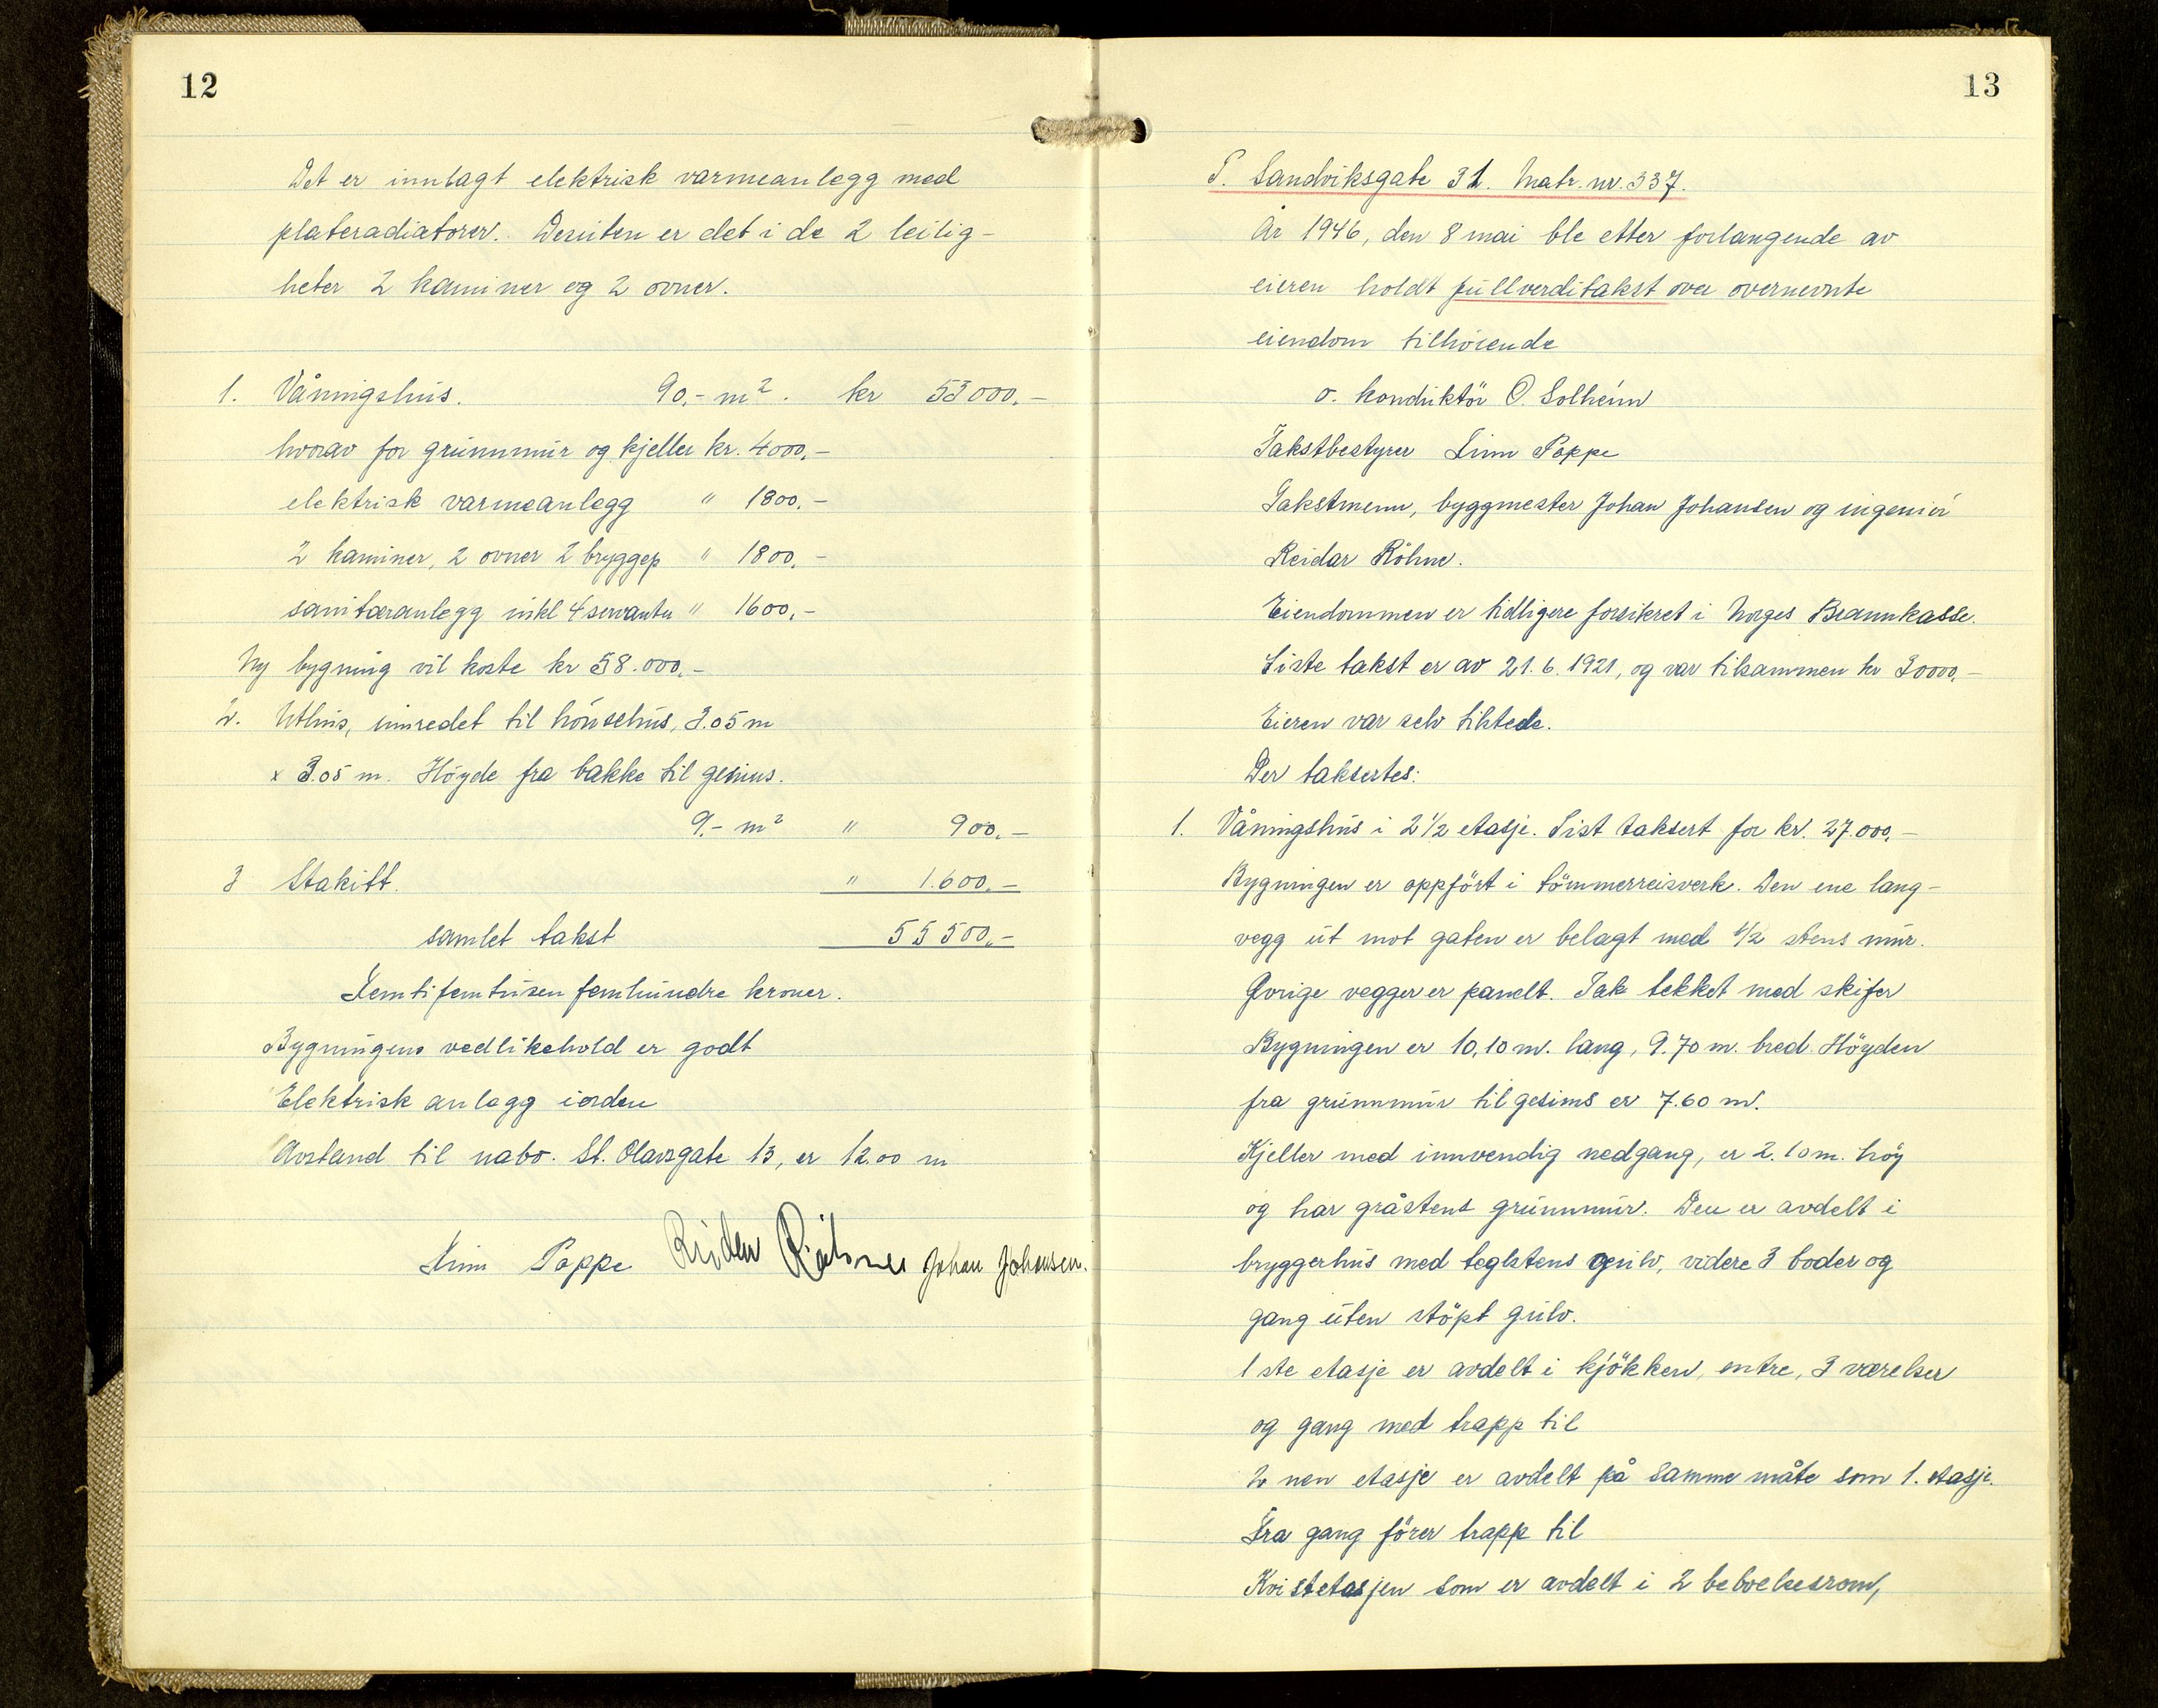 12
Det er innlagt elektrisk varmeanlegg med
plateradiatorer. Desuten er det i de 2 leilig-
heter 2 kaminer og 2 ovner.
1. Våningshus. 90,- m². kr 53000.-
hvorav for grunnmur og kjeller kr. 4000,-
elektrisk varmeanlegg " 1800.-
2 kaminer, 2 ovner 2 bryggep " 1800.-
sanitæranlegg inkl 4 servanter " 1600.-
Ny bygning vil koste kr 58.000.-
2. Uthus, innredet til hönsehus, 3.05 m
x 3.05 m. Höyde fra bakke til gesims.
9.- m² " 900.-
3 Stakitt. " 1.600.-
samlet takst 55 500.-
Femtifemtusen femhundre kroner.
Bygningens vedlikehold er godt
Elektrisk anlegg iorden
Avstand til nabo. St. Olavsgate 13, er 12.00 m
Linn Poppe Reidar Röhne Johan Johansen.
13
P. Sandviksgate 31. Matr. nr. 337.
År 1946, den 8 mai ble etter forlangende av
eieren holdt fullverditakst over overnevnte
eiendom tilhörende
o. konduktör O. Solheim
Takstbestyrer Linn Poppe
Takstmenn, byggmester Johan Johansen og ingeniör
Reidar Röhne.
Eiendommen er tidligere forsikret i Norges Brannkasse.
Siste takst er av 21.6.1921, og var tilsammen kr 30000.-
Eieren var selv tilstede.
Der taksertes:
1. Våningshus i 2 1/2 etasje. Sist taksert for kr. 27.000.-
Bygningen er oppfört i tömmerreisverk. Den ene lang-
vegg ut mot gaten er belagt med 1/2 stens mur.
Övrige vegger er panelt. Tak tekket med skifer
Bygningen er 10,10 m. lang, 9.70 m. bred. Höyden
fra grunnmur til gesims er 7.60 m.
Kjeller med innvendig nedgang, er 2.10 m. höy
og har gråstens grunnmur. Den er avdelt i
bryggerhus med teglstens gulv, videre 3 boder og
gang uten stöpt gulv.
1 ste etasje er avdelt i kjökken, entre, 3 værelser
og gang med trapp til
2 nen etasje er avdelt på samme måte som 1. etasje.
Fra gang förer trapp til
Kvistetasjen som er avdelt i 2 beboelsesrom,